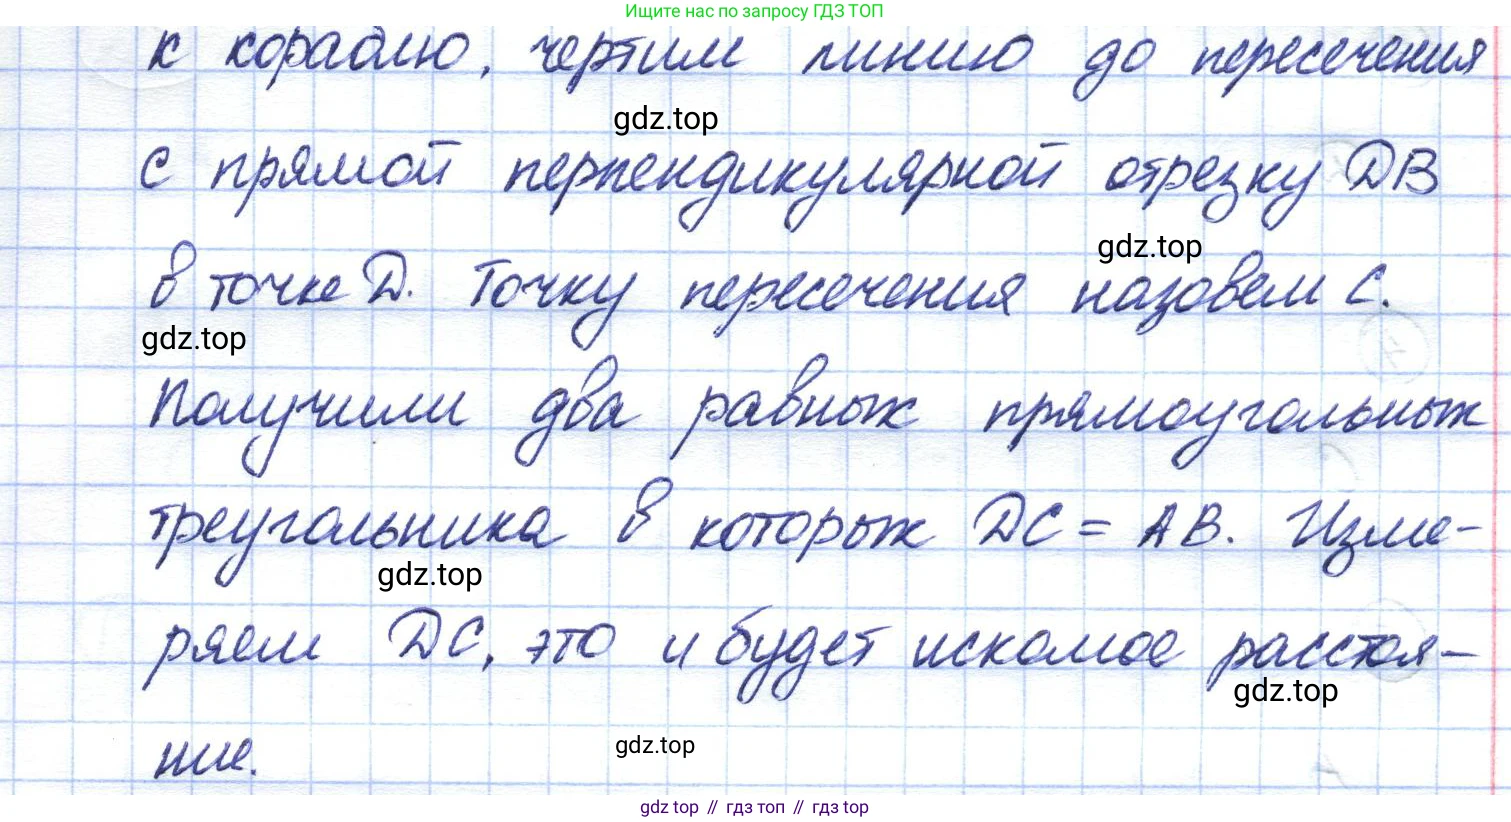 Ищите нас по запросу ГДЗ ТОП
к кораблю, чертим линию до пересечения
gdz.top
с прямой перпендикулярной отрезку DB
gdz.top
в точке D. Точку пересечения назовем C.
gdz.top
Получили два равных прямоугольных
треугольника в которых DC = AB. Изме-
gdz.top
ряем DC, это и будет искомое расстоя-
gdz.top
ние.
gdz.top
gdz top // гдз топ // гдз top